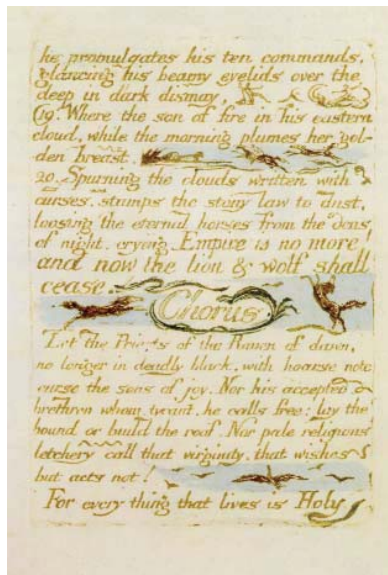 he promulgates his ten commands,
glancing his beamy eyelids over the
deep in dark dismay,
19. Where the son of fire in his eastern
cloud, while the morning plumes her gol-
den breast,
20. Spurning the clouds written with
curses, stamps the stony law to dust,
loosing the eternal horses from the dens
of night, crying Empire is no more!
and now the lion & wolf shall
cease.
Chorus
Let the Priests of the Raven of dawn,
no longer in deadly black, with hoarse note
curse the sons of joy. Nor his accepted
brethren whom, tyrant, he calls free: lay the
bound or build the roof. Nor pale religious
letchery call that virginity, that wishes
but acts not!
For every thing that lives is Holy